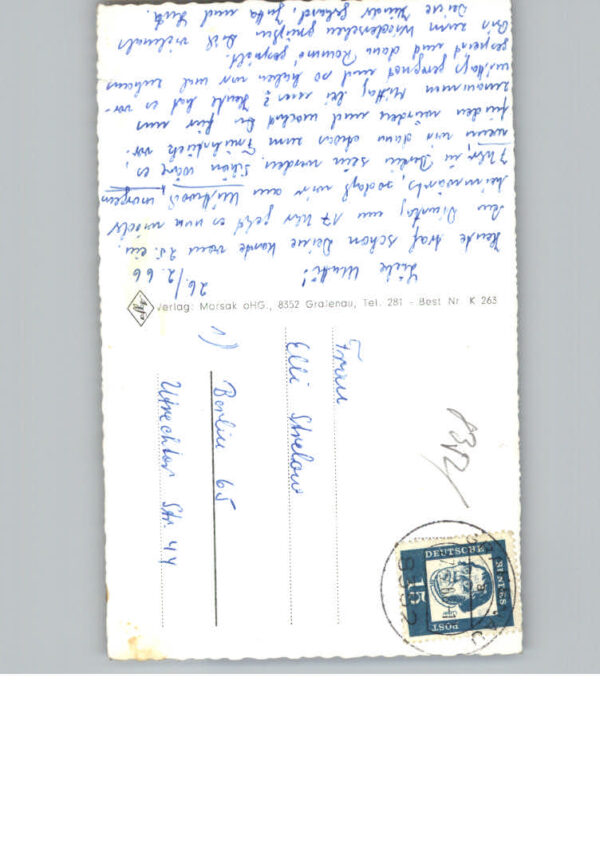 26./2.66
Liebe Mutti!
Heute traf schon Deine Karte vom 25. ein.
Am Dienstag um 17 Uhr geht es nun wieder
heimwärts, sodaß wir am Mittwoch, morgens
7 Uhr, in Berlin sein werden. Schön wäre es,
wenn wir dann etwas zum Frühstück vor-
finden würden und machst Du für uns
zusammen Mittag bei uns? Heute hat es vor-
mittags geregnet und so haben wir mal zuhaus
gespeist und dann Rommé gespielt.
Bis zum Wiedersehen grüßen Dich vielmals
Deine Kinder Gerhard, Jutta und
Verlag: Morsak oHG., 8352 Grafenau, Tel. 281 - Best Nr. K 263
Frau
Elli Strelow
1) Berlin 65
Utrechter Str. 44
DEUTSCHE
BUNDES
POST
15
8352